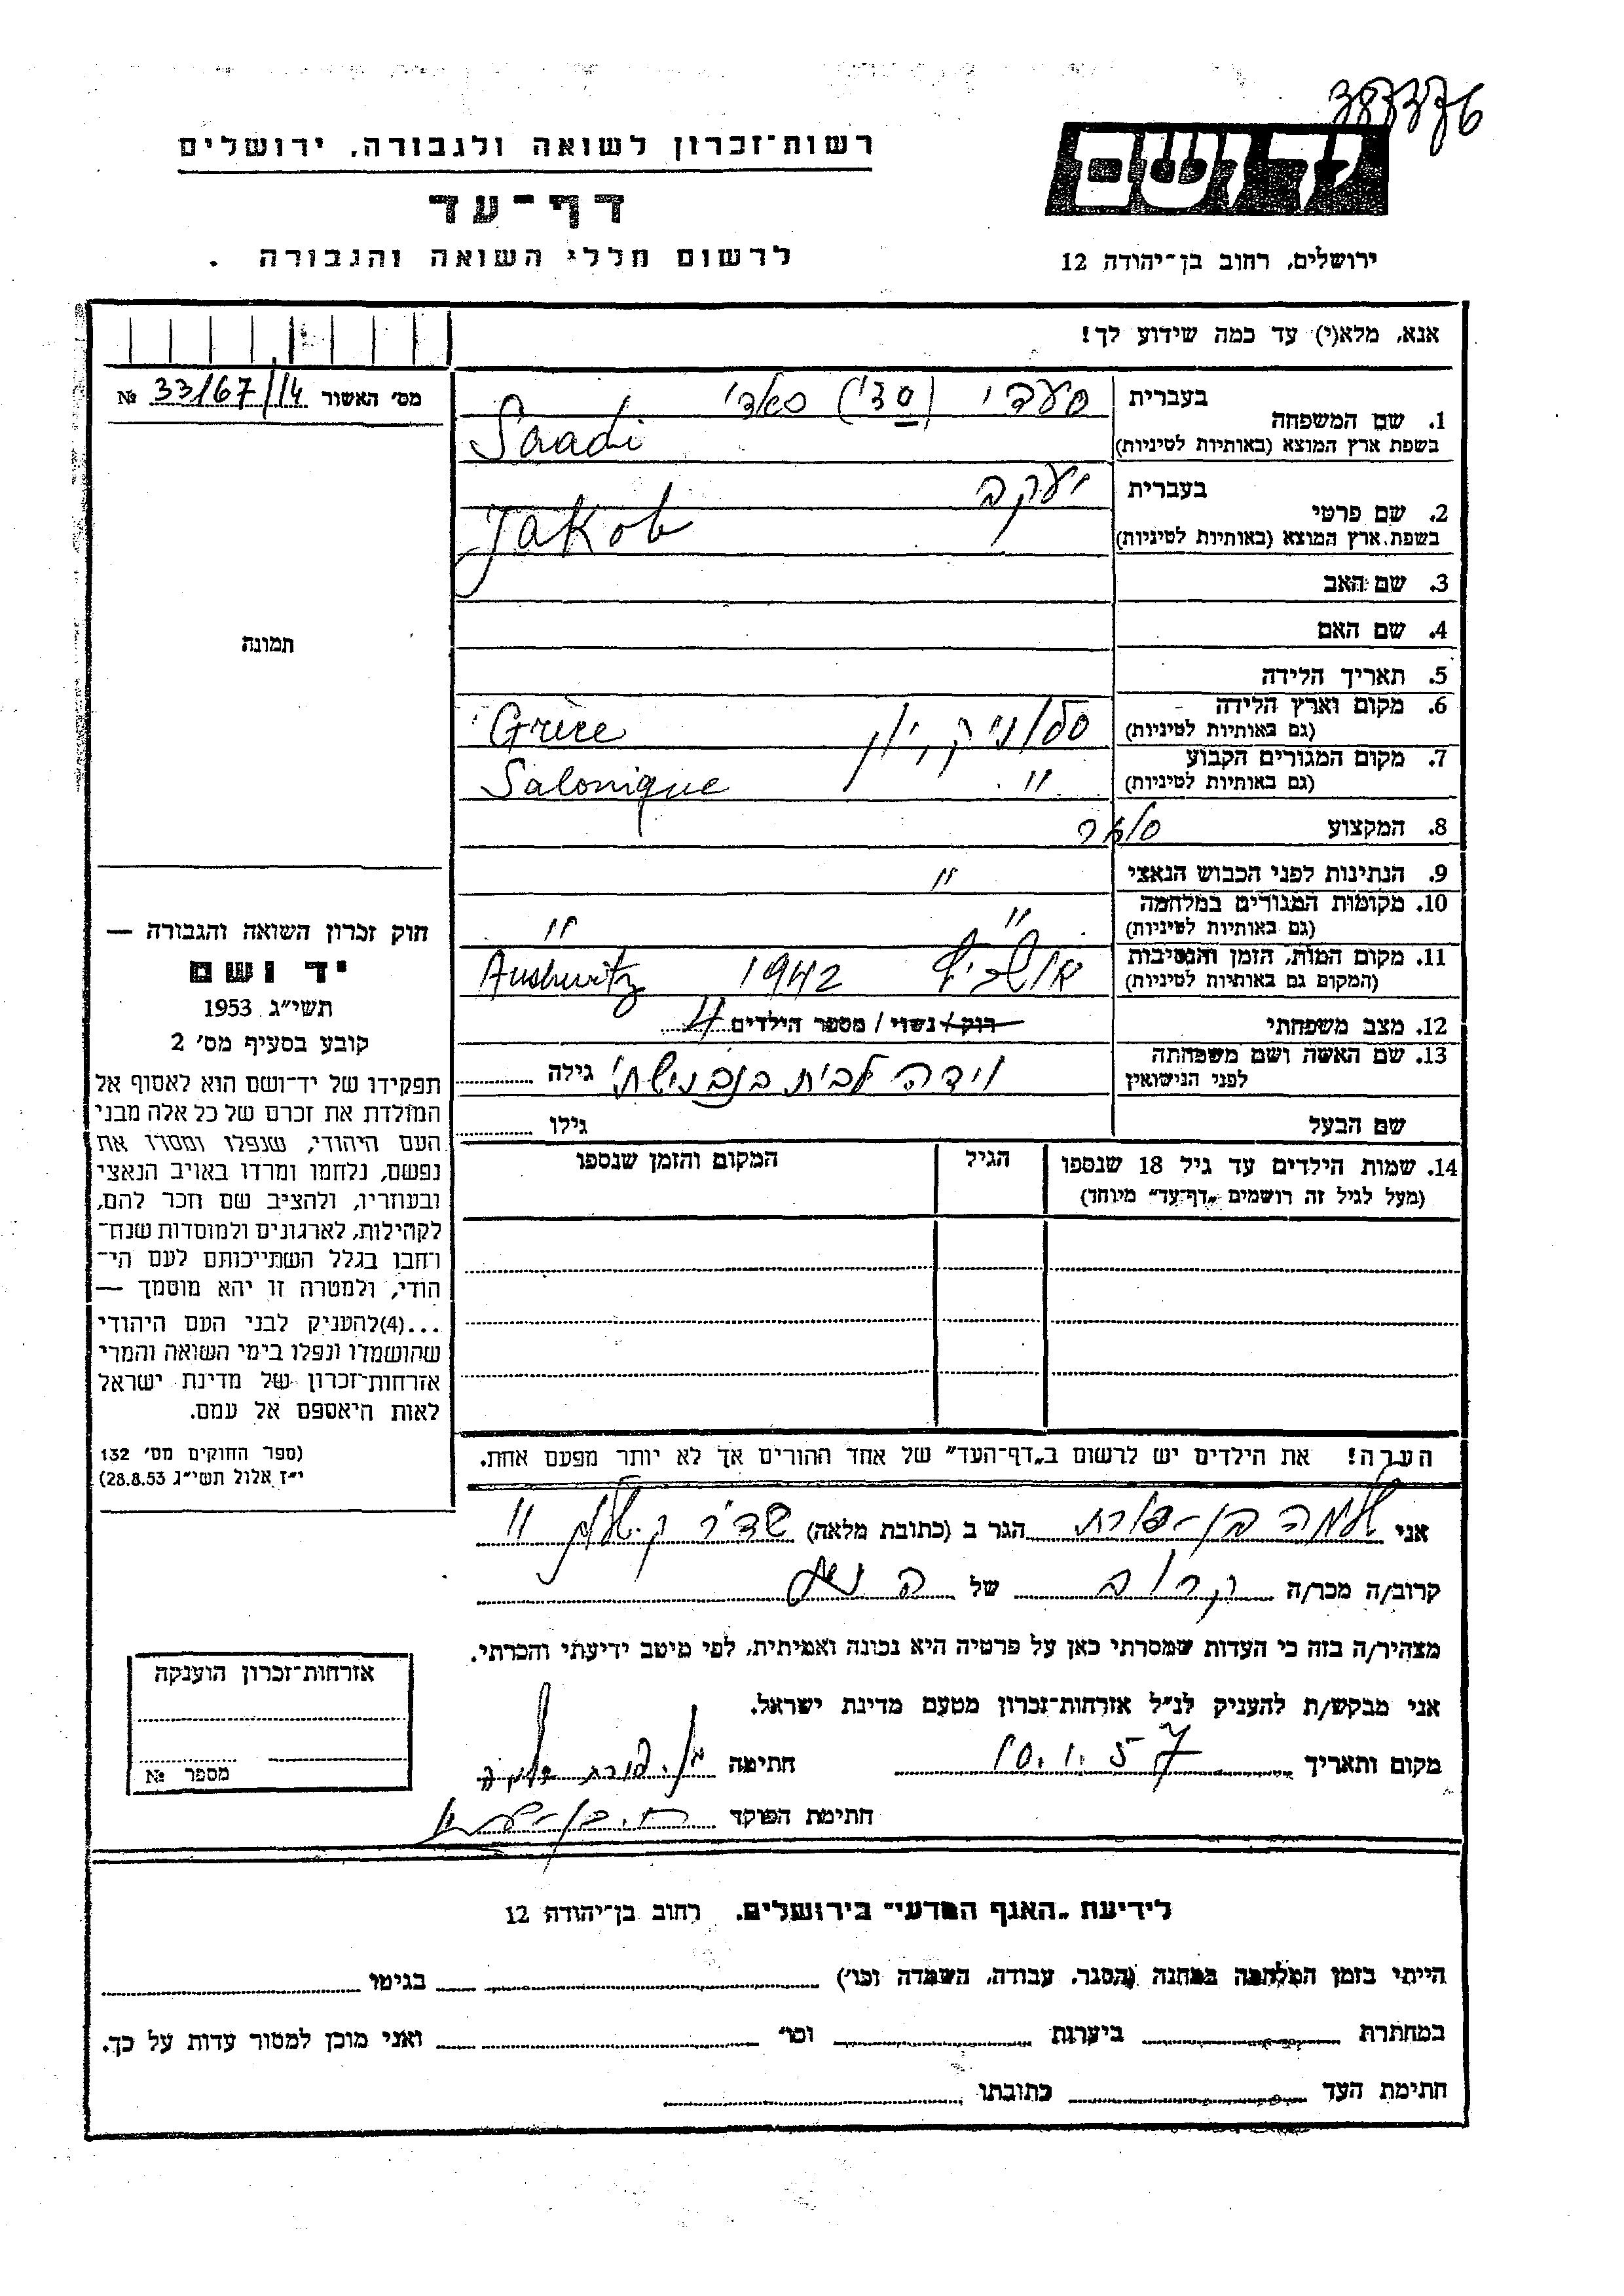 387376
רשות־זכרון לשואה ולגבורה, ירושלים
דף־עד
לרשום חללי השואה והגבורה .
יד ושם
ירושלים, רחוב בן־יהודה 12
אנא, מלא(י) עד כמה שידוע לך!
מס׳ האשור 33/67/14 №
1. שם המשפחה בעברית סעדי (סדי) סאדי
בשפת ארץ המוצא (באותיות לטיניות) Saadi
2. שם פרטי בעברית יעקב
בשפת ארץ המוצא (באותיות לטיניות) Jakob
3. שם האב
4. שם האם
5. תאריך הלידה
6. מקום וארץ הלידה (גם באותיות לטיניות) סלוניק, יון Grèce
7. מקום המגורים הקבוע (גם באותיות לטיניות) " Salonique
8. המקצוע סוחר
9. הנתינות לפני הכבוש הנאצי "
10. מקומות המגורים במלחמה (גם באותיות לטיניות) " "
11. מקום המות, הזמן והנסיבות (המקום גם באותיות לטיניות) 1942 Aushwitz
12. מצב משפחתי רווק / נשוי / מספר הילדים 4
13. שם האשה ושם משפחתה לפני הנישואין וידה לבית בנבנישתי גילה
שם הבעל גילו
14. שמות הילדים עד גיל 18 שנספו הגיל המקום והזמן שנספו
(מעל לגיל זה רושמים „דף־עד" מיוחד)
תמונה
חוק זכרון השואה והגבורה —
יד ושם
תשי״ג 1953
קובע בסעיף מס׳ 2
תפקידו של יד־ושם הוא לאסוף אל
המולדת את זכרם של כל אלה מבני
העם היהודי, שנפלו ומסרו את
נפשם, נלחמו ומרדו באויב הנאצי
ובעוזריו, ולהציב שם וזכר להם,
לקהילות, לארגונים ולמוסדות שנח־
רחבו בגלל השתייכותם לעם הי־
הודי, ולמטרה זו יהא מוסמך —
...(4)להעניק לבני העם היהודי
שהושמדו ונפלו בימי השואה והמרי
אזרחות־זכרון של מדינת ישראל
לאות היאספם אל עמם.
(ספר החוקים מס׳ 132
י״ז אלול תשי״ג 28.8.53)
הערה! את הילדים יש לרשום ב„דף־העד" של אחד ההורים אך לא יותר מפעם אחת.
אני שלמה בן־פורת הגר ב (כתובת מלאה) "
קרוב/ה מכר/ה קרוב של
מצהיר/ה בזה כי העדות שמסרתי כאן על פרטיה היא נכונה ואמיתית, לפי מיטב ידיעתי והכרתי.
אני מבקש/ת להעניק לנ״ל אזרחות־זכרון מטעם מדינת ישראל.
מקום ותאריך 10.1.57 חתימה בן פורת שלמה
חתימת הפוקד
אזרחות־זכרון הוענקה
מספר №
לידיעת „האגף המדעי" בירושלים, רחוב בן־יהודה 12
הייתי בזמן המלחמה במחנה (הסגר, עבודה, השמדה וכו׳) בגיטו
במחתרת ביערות וכו׳ ואני מוכן למסור עדות על כך.
חתימת העד כתובתו